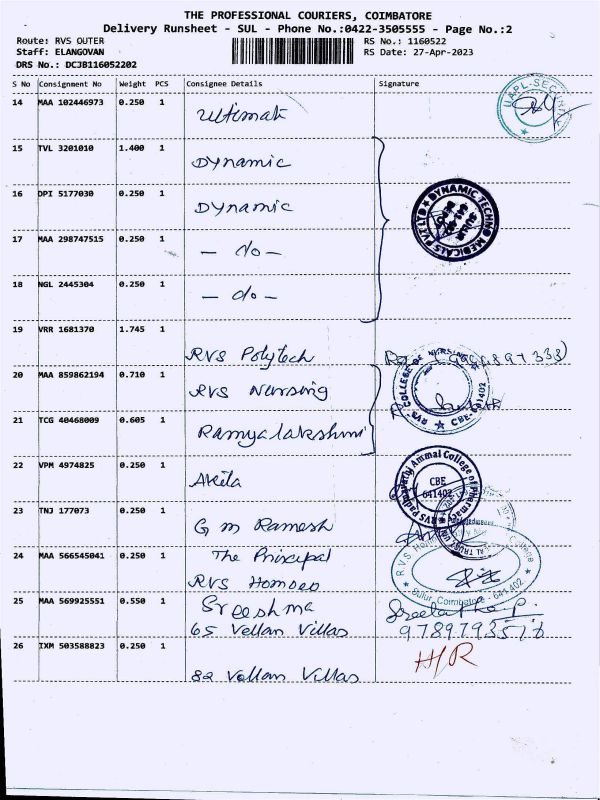 THE PROFESSIONAL COURIERS, COIMBATORE
Delivery Runsheet - SUL - Phone No.:0422-3505555 - Page No.:2
Route: RVS OUTER
Staff: ELANGOVAN
DRS No.: DCJB116052202
RS No.: 1160522
RS Date: 27-Apr-2023
S No Consignment No Weight PCS Consignee Details Signature
14 MAA 102446973 0.250 1 Ultimate
UAPL-SECURITY
15 TVL 3201010 1.400 1 Dynamic
16 DPI 5177030 0.250 1 Dynamic
DYNAMIC TECHNO MEDICALS PVT LTD
17 MAA 298747515 0.250 1 - do -
18 NGL 2445304 0.250 1 - do -
19 VRR 1681370 1.745 1 RVS Polytech
20 MAA 859862194 0.710 1 RVS Nursing
RVS COLLEGE OF NURSING
CBE-641402
21 TCG 40468009 0.605 1 Ramyalakshmi
22 VPM 4974825 0.250 1 Akila
RVS Padmavathi Ammal College of Pharmacy
CBE
641402
23 TNJ 177073 0.250 1 G m Ramesh
24 MAA 566545041 0.250 1 The Principal
RVS Homoeo
R.V.S. College
Sulur, Coimbatore - 641 402
25 MAA 569925551 0.550 1 Sreeshma
65 Vellan Villas
26 IXM 503588823 0.250 1
H/R
82 Vellan Villas